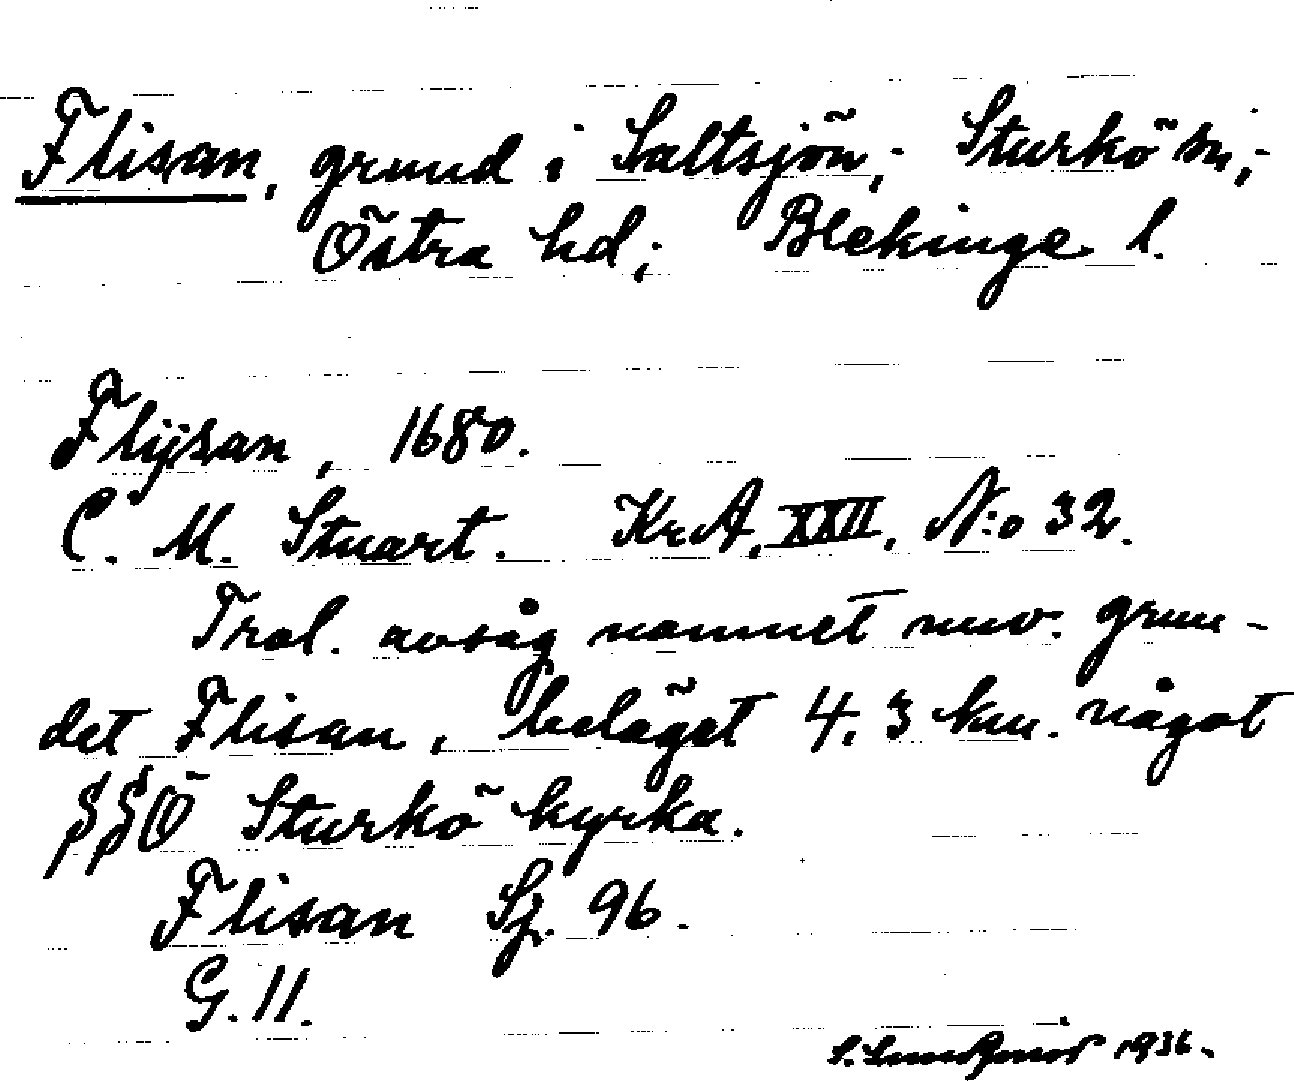 Flisan, grund i Saltsjön; Sturkö sn;
Östra hd; Blekinge l.
Flijsan, 1680.
C. M. Stuart. KrA, XXII, N:o 32.
Trol. avsåg namnet nuv. grun-
det Flisan, beläget 4,3 km. något
SSÖ Sturkö kyrka.
Flisan Sj. 96.
G. 11.
S. 1936.